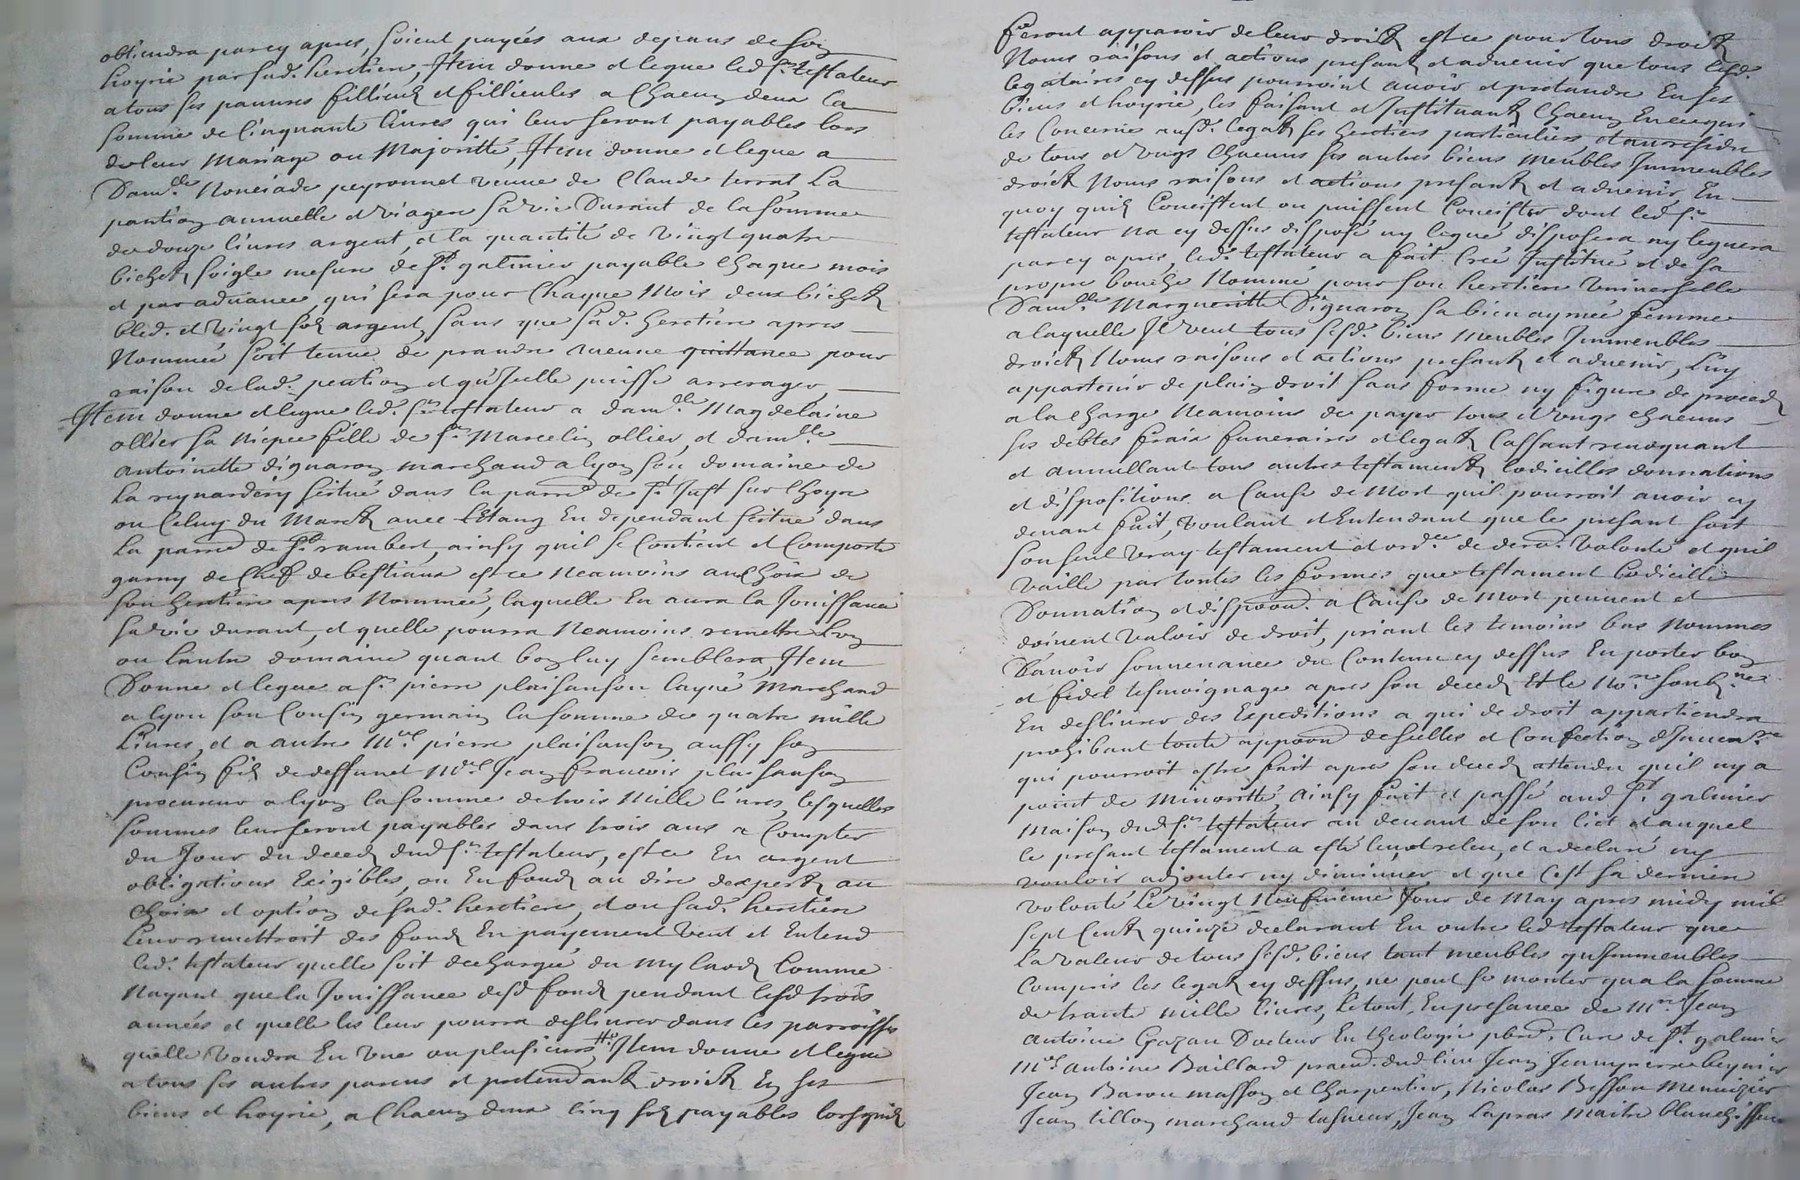 obtiendra parcy apres, soient payées aux depans de son
hoyrie par sad. heretiere, Item donne et legue led. Sr. testateur
a tous ses pauures fillieuls et fillieules a chacun deux la
somme de cinquante liures qui leur seront payables lors
de leur Mariage ou Majoritté, Item donne et legue a
Damlle. peyronnet veuue de Claude terrat La
pantion annuelle et viagere sa vie Durant de la somme
de douze liures argent, et la quantité de vingt quatre
bichets soigle mesure de St. galmier payable chaque mois
et par aduance, qui sera pour chaque Mois deux bichets
bled. et vingt sols argent, sans que sad. heretiere apres
Nommée soit tenue de prandre aucune quittance pour
raison de lad. pention et qu'Icelle puisse arrerager
Item donne et legue led. Sr. testateur a damlle. Magdelaine
ollier sa niepce fille de Sr. Marcelin ollier, et damlle.
antoinette dignaron marchand a lyon son domaine de
La reynardery scitué dans la parre. de St. Just sur Choyre
ou Celuy du Marest auec L'Etang En dependant scitué dans
La parre. de St. rambert, ainsy quil se Contient et Comporte
garny de Chef de bestiaux est ce neamoins au Choix de
son heretiere apres Nommée, laquelle En aura la Jouissance
sa vie durant, et quelle pourra Neamoins remettre Lun
ou lautre domaine quant bon luy semblera, Item
Donne et legue a Sr. pierre plaisanson layné Marchand
a lyon son Cousin germain la somme de quatre mille
Liures, et a autre Me. pierre plaisanson aussy son
Cousin fils de deffunct Me. Jean francois plaisanson
procureur a lyon la somme de trois Mille liures, lesquelles
sommes leur seront payables dans trois ans a Compter
du Jour du deced dud Sr. testateur, est ce En argent
obligations Exigibles, ou En fonds au dire dexperts au
Choix et option de sad. heretiere, et ou sad. heretiere
leur remettroit des fonds En payement Veut et Entend
led. testateur quelle soit dechargée du my laods Comme
Nayant que la Jouissance desd fonds pendant lesd trois
années et quelle les leur pourra desliurer dans les parroisses
quelle Voudra En vne ou plusieurs, Item donne et legue
a tous ses autres parens et pretendants droits En ses
biens et hoyrie, a Chacun deux Cinq sols payables lorsquils
feront apparoir de leur droits est ce pour tous droits
Noms raisons et actions presants et aduenir que tous lesd.
legataires cy dessus pourroient auoir et pretandre En ses
biens et hoyrie, les faisant et Instituant Chacun En ce qui
les Concerne ausd. legats ses heretiers particuliers, et au residu
de tous et vngs Chacuns ses autres biens meubles Immeubles
droits Noms raisons et actions presants et aduenir, En
quoy quils Concistent ou puissent Concister dont led Sr.
testateur na cy dessus disposé ny legué disposera ny leguera
parcy apres, led. testateur a fait Créé Institué et de sa
propre bouche Nommé pour son heretiere Vniverselle
Damlle. Margueritte Dignaron sa bien aymée femme
a laquelle Il veut tous sesd. biens Meubles Immeubles
droits Noms raisons et actions presants et aduenir, Luy
appartenir de plain droit sans forme ny figure de proceds
a la charge Neamoins de payer tous et vngs chacuns
ses debtes fraix funeraires et legats Cassant reuoquant
et annullant tous autres testaments Codicilles donnations
et dispositions a Cause de Mort quil pourroit auoir cy
deuant fait, voulant et Entendant que le presant soit
son seul vray testament et ordce. de derre. volonté et quil
Vaille par toutes les formes que testament Codicille
Donnation et dispoon. a Cause de Mort peuuent et
doiuent Valoir de droit, priant les temoins bas Nommés
Dauoir souuenance du Contenu cy dessus En porter bon
et fidel tesmoignage apres son deced Et le Nore. soubsné.
En desliurer des Expeditions a qui de droit appartiendra
prohibant toute appoon de scellés et Confection dInuenre.
qui pourroit estre fait apres son deced attendu quil ny a
point de Minoritté, ainsy fait et passé aud St. galmier
Maison dud Sr. testateur au deuant de son lict et auquel
le presant testament a esté leu, et releu, et a declaré ny
vouloir adjouter ny diminuer et que Cest sa derniere
volonté Le vingt Neufuieme Jour de May apres midy mil
sept Cents quinze declarant En outre led testateur que
La valeur de tous sesd. biens tant meubles qu'Immeubles
Compris les legats cy dessus, ne peut se monter qua la somme
de trante mille liures, Le tout En presance de Mre. Jean
Antoine Gazan Docteur En theologie pbre. Curé de St. galmier
Me. antoine Baillard dud lieu Jean
Jean Barou masson et Charpentier, Nicolas Besson Menuizier
Jean tillon marchand Jean Lapras Maitre blanchisseur